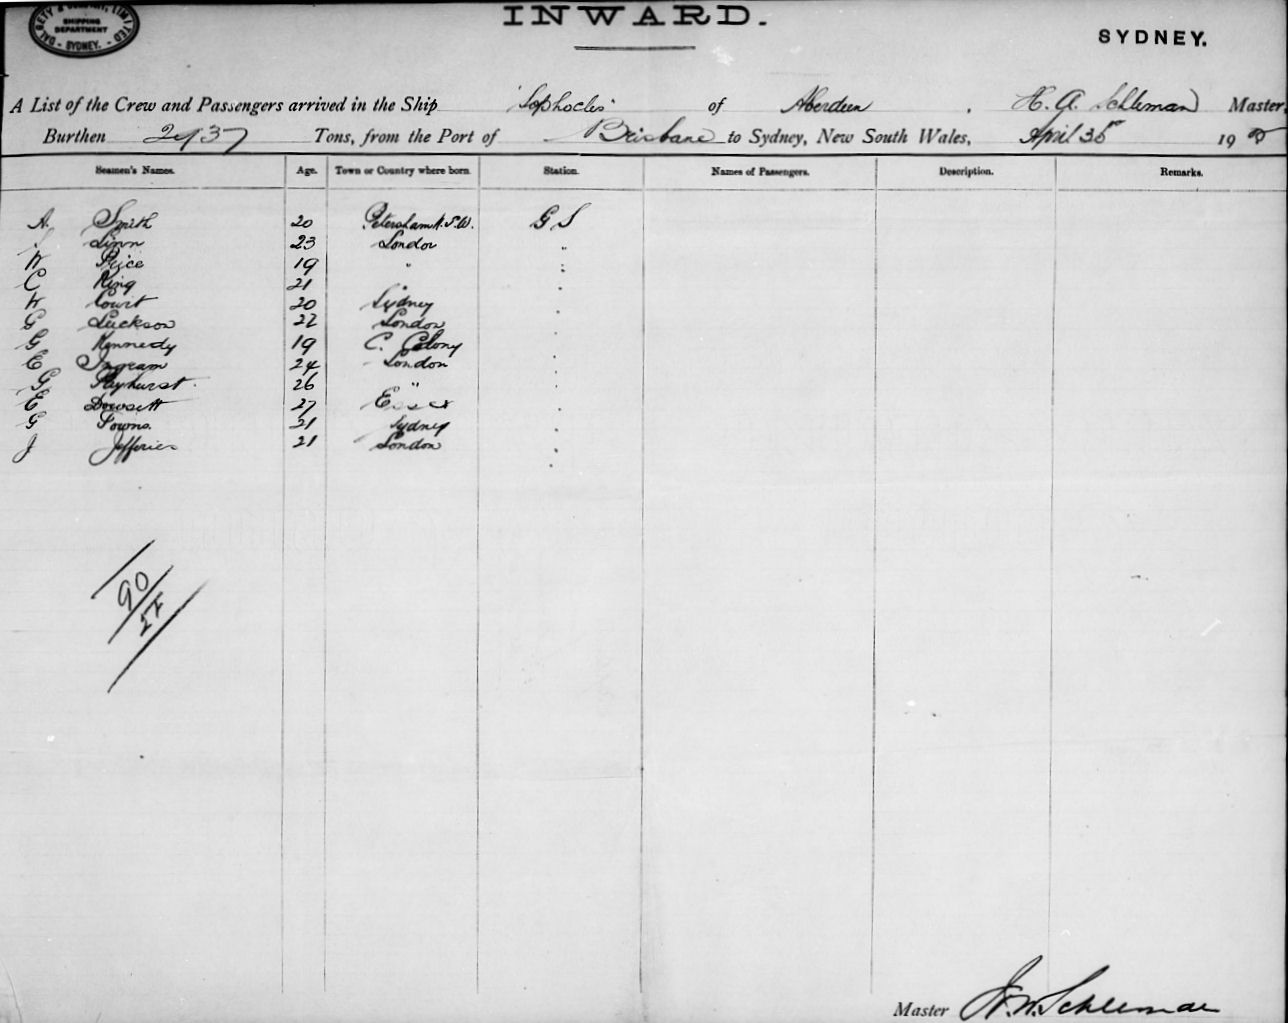 DALGETY & COMPANY, LIMITED
SHIPPING
DEPARTMENT
SYDNEY.
INWARD.
SYDNEY.
A List of the Crew and Passengers arrived in the Ship "Sophocles" of Aberdeen, H. A. Schleman Master,
Burthen Tons, from the Port of Brisbane to Sydney, New South Wales, April 19
Seamen's Names. Age. Town or Country where born. Station. Names of Passengers. Description. Remarks.
A. Smith 20 Petersham N.S.W. G S
Linn 23 London "
W Price 19 " "
C King 21 " "
W Court 20 Sydney "
G Luckson 22 London "
G Kennedy 19 C. Colony "
E Ingram 24 London "
G Payhurst 26 " "
E Dowsett 27 Essex "
G Towns. 21 Sydney "
J Jefferies 21 London "
90
Master Schleman